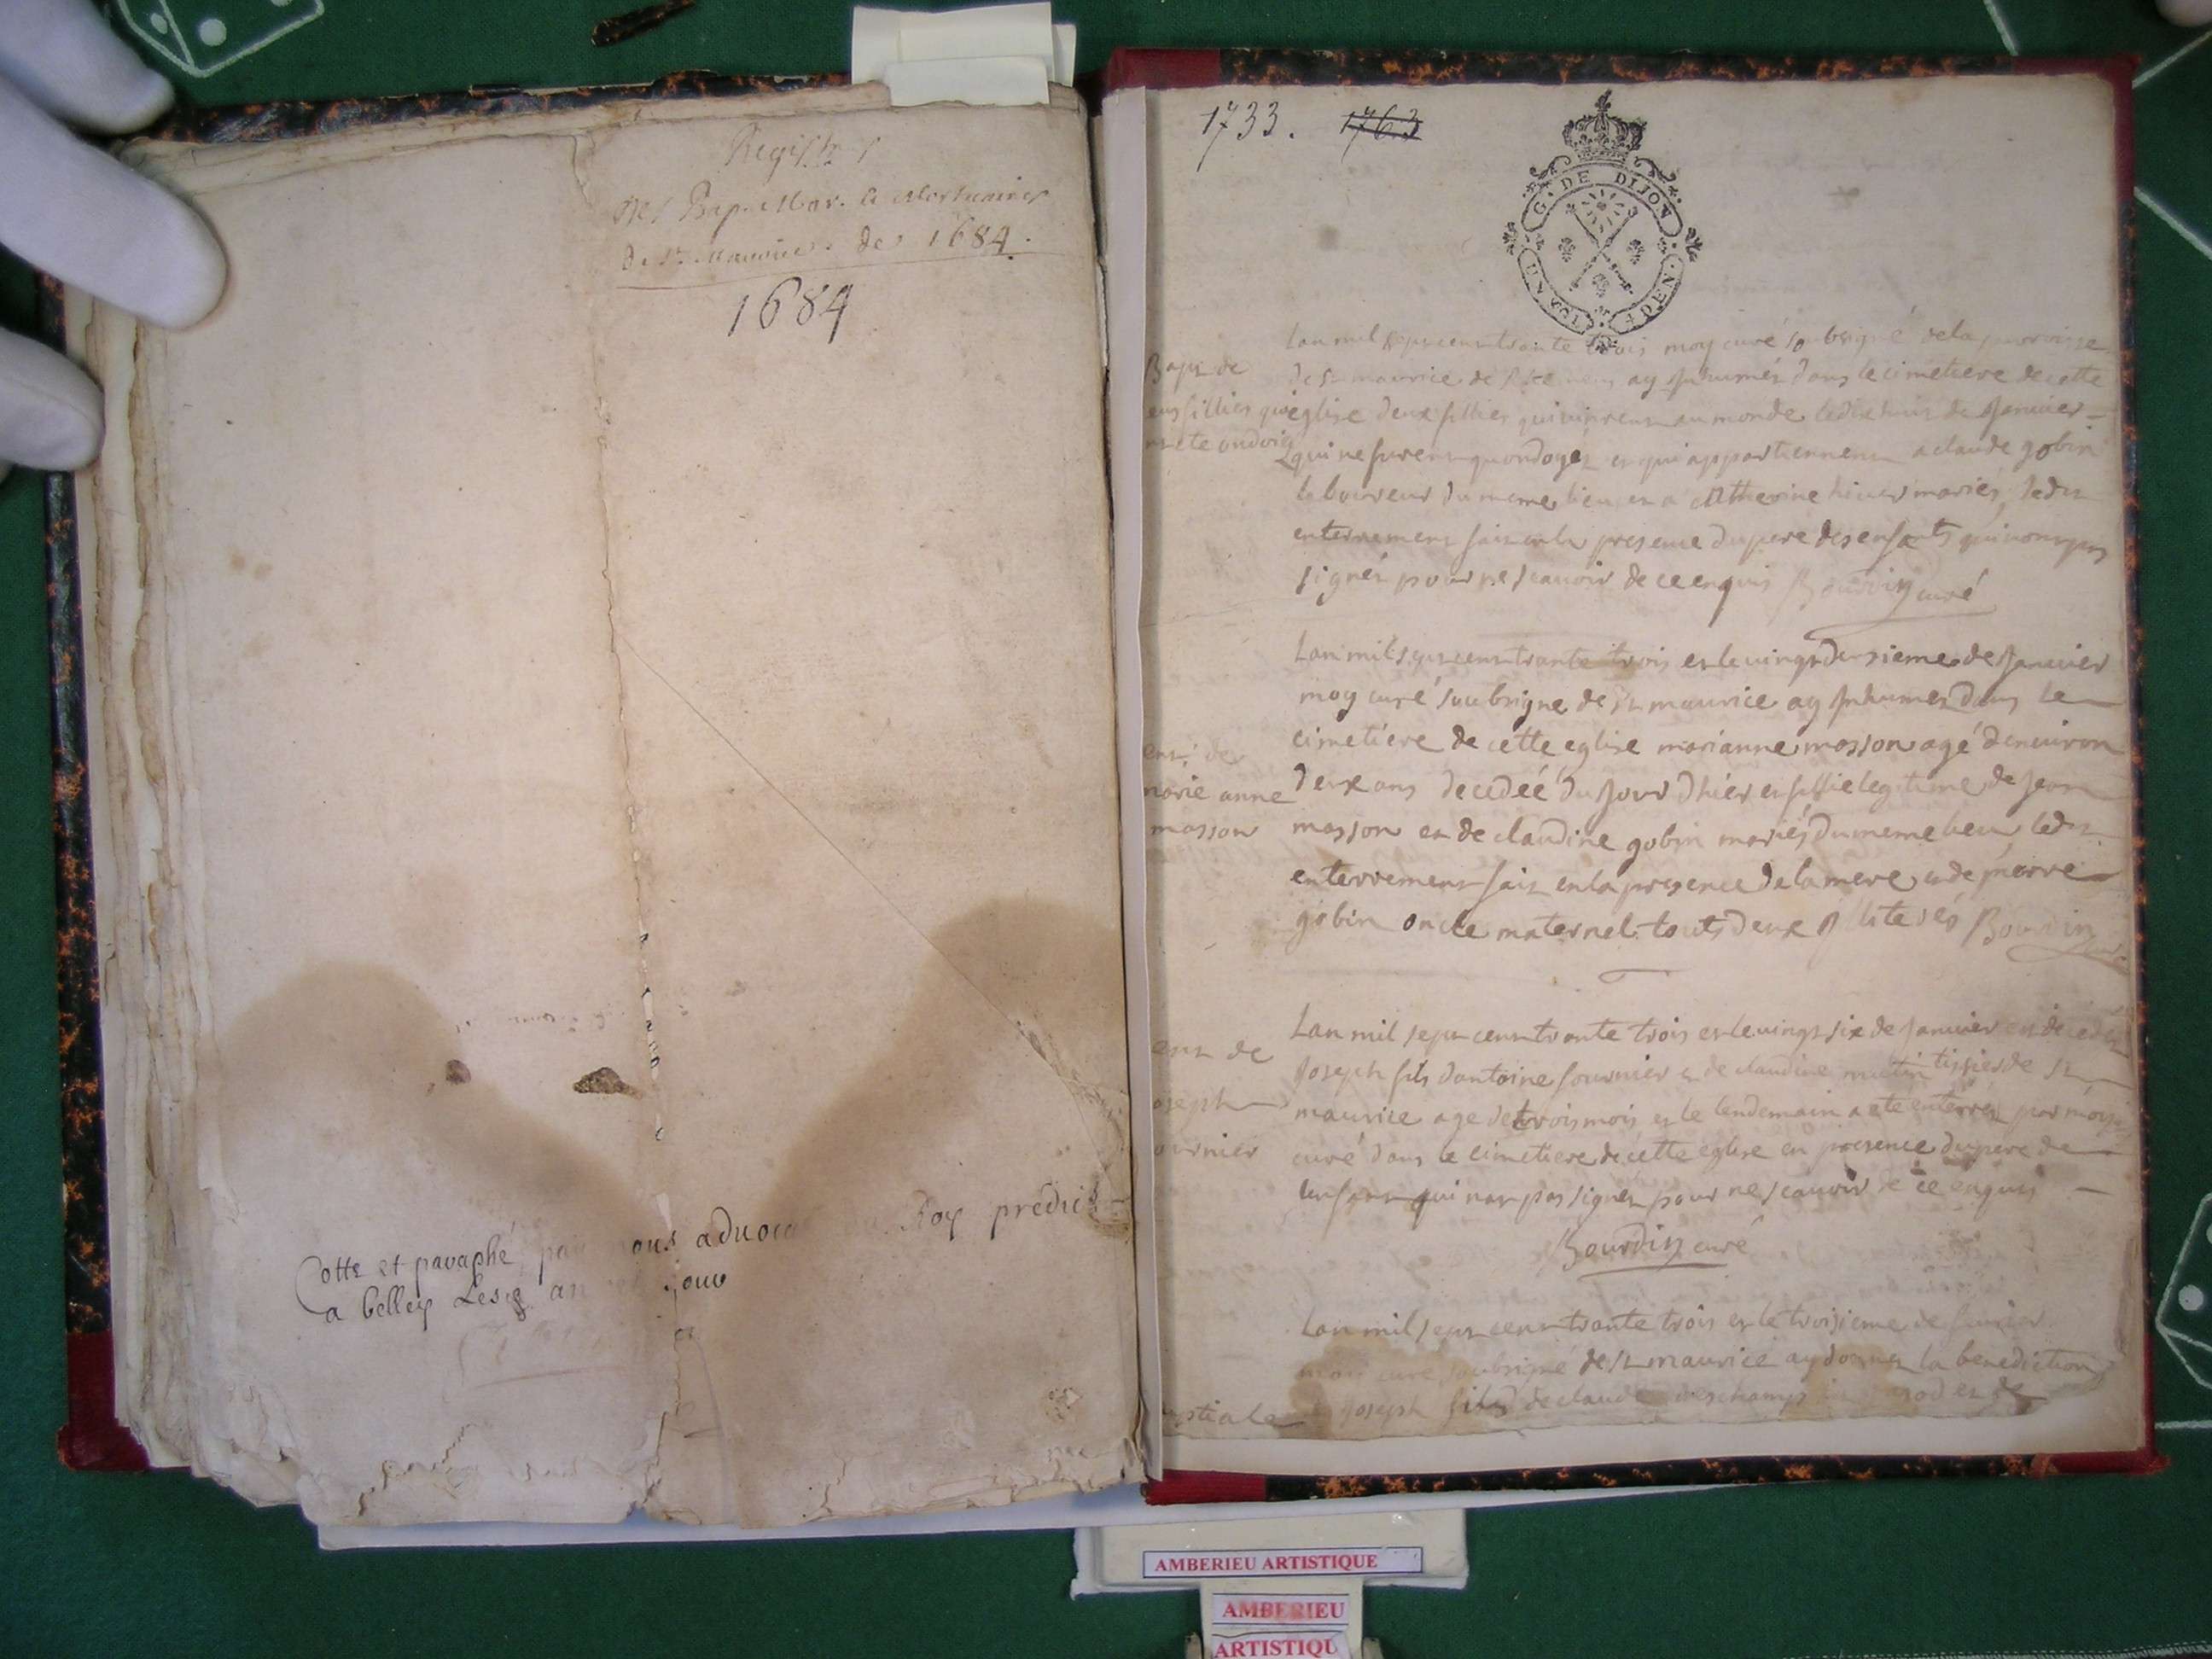 Registre
des Bap. Mar. & Mortuaires
de St. Maurice. de 1684.
1684
Cotte et paraphé par nous aduoca du Roy predict
a belley Les an jour
1733. 1763
G. DE DIJON
UN SOL 4 DEN.
Lan mil sept cent trante trois moy curé soubsigné de la parroisse
de st maurice de ay Jnhumér dans le cimetiere de cette
eglise deux fillies qui vinrent au monde le dix huit de Januier
qui ne furent quondoyés et qui appartiennent a claude gobin
laboureur du meme lieu et a Catherine mariés ledit
enterrement fait en la presence du pere des enfants qui nont pas
signér pour ne scauoir de ce enquis Bourdin curé
Bapt de
eux fillies qui
nt ete ondoies
Lan mil sept cent trante trois et le vingt deusieme de Januier
moy curé soubsigne de st maurice ay Jnhumer dans le
cimetiere de cette eglise marianne masson agé denuiron
deux ans decedéé du Jour dhier et fillie legitime de Jean
masson et de claudine gobin mariés du meme lieu ledit
enterrement fait en la presence de la mere et de pierre
gobin oncle maternel touts deux Jlliterés Bourdin
curé
ent. de
marie anne
masson
Lan mil sept cent trante trois et le vingt six de Januier est decedér
Joseph fils dantoine fournier et de claudine mutin tissier de st
maurice age de trois mois et le lendemain a ete enterrér par moy
curé dans le cimetiere de cette eglise en presence du pere de
lenfant qui nat pas signer pour ne scauoir de ce enquis
Bourdin curé
ent de
oseph
ournier
Lan mil sept cent trante trois et le troisieme de feurier
moy curé soubsigné de st maurice ay donner la benediction
nuptiale a Joseph fils de claude deschamps et de